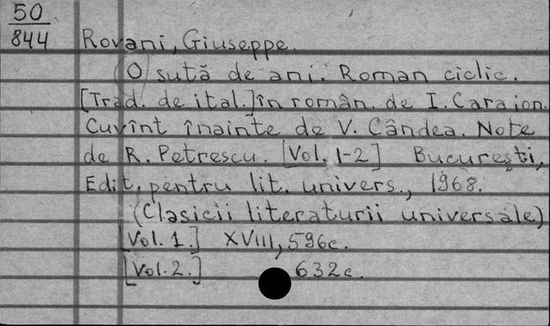 50
844
Rovani, Giuseppe.
(O) sută de ani. Roman ciclic.
[Trad. de ital.] în român. de I. Caraion.
Cuvînt înainte de V. Cândea. Note
de R. Petrescu. [Vol. 1-2] București,
Edit. pentru lit. univers., 1968.
(Clasicii literaturii universale)
[Vol. 1.] XVIII, 596c.
[Vol. 2.] 632c.